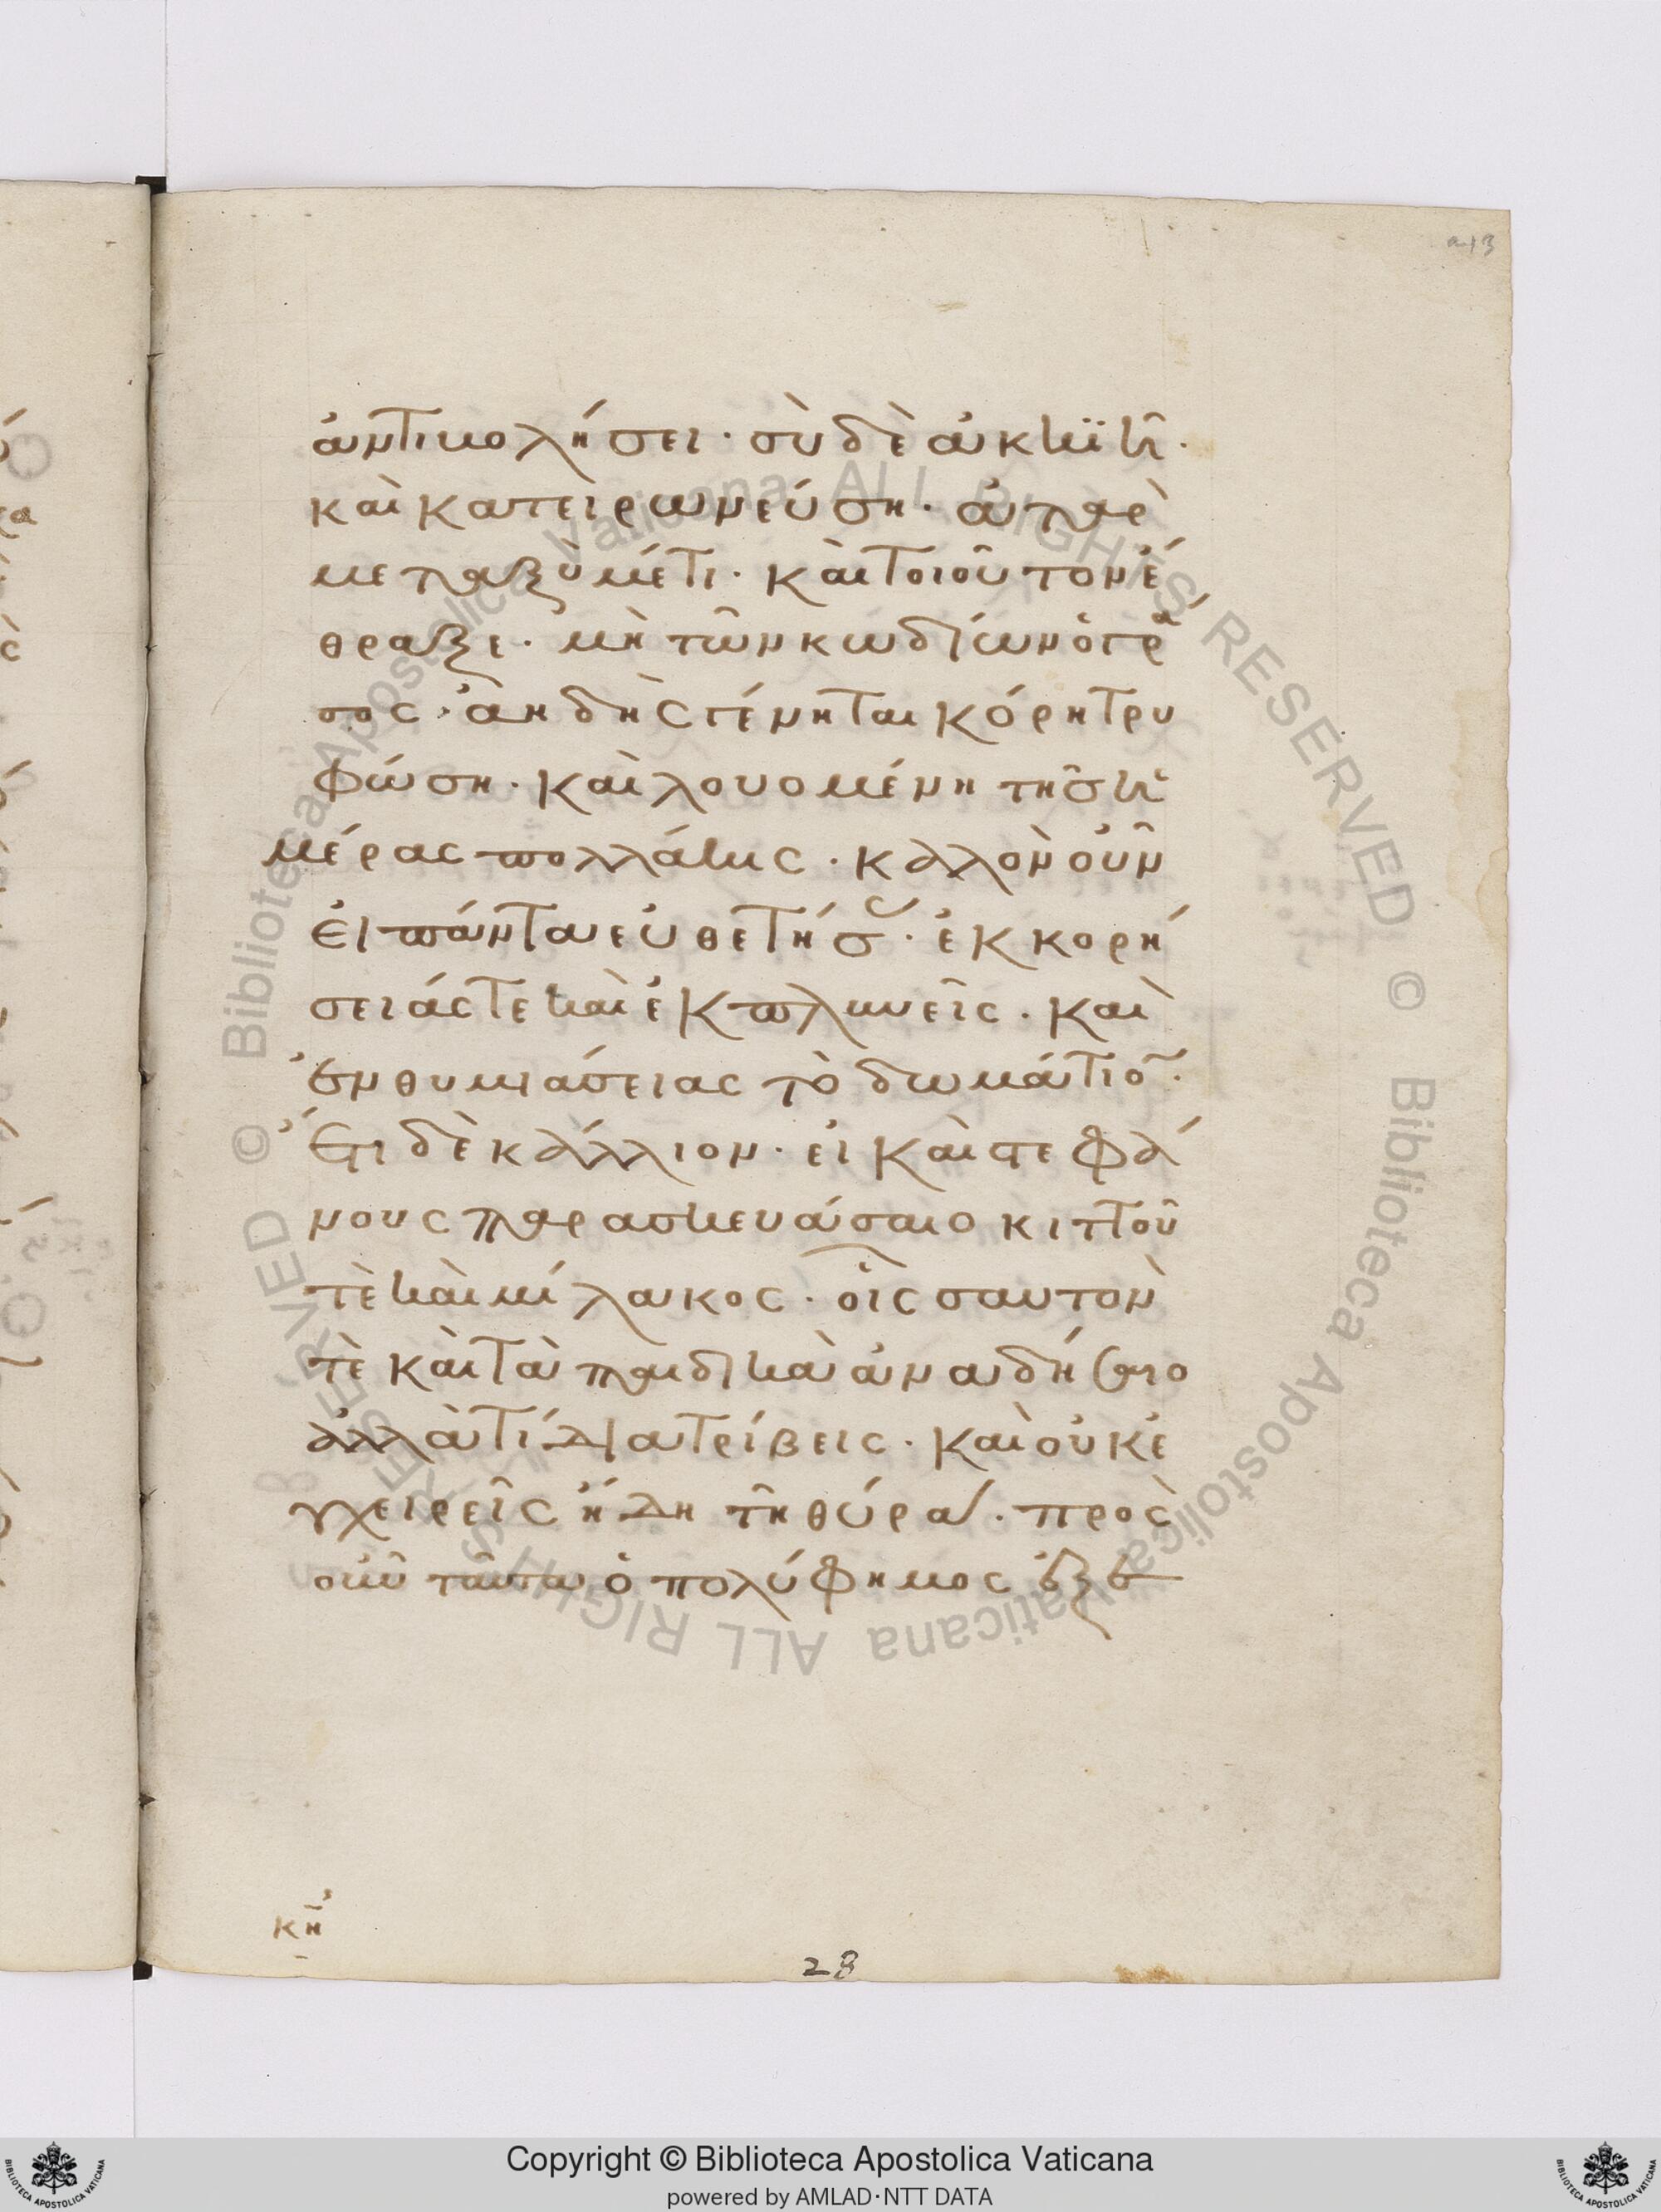 ἀντιμολήσει· σὺ δὲ ἀκκιῆ·
καὶ κατειρωνεύση. ἀτὰρ
μεταξὺ μέτι· καὶ τοιοῦτον έ
θραξε· μὴ τῶν κωδίων ὁ γρά
σος· ἀηδὴς γένηται κόρη τρυ
φώση· καὶ λουομένη τῆσ ἡ
μέρας πολλάκις· καλλὸν οὖν
εἰ πάντα εὐθετήσ· ἐκκορή
σειάς τε καὶ ἐκπλυνεῖς· καὶ
ἐνθυμιάσειας τὸ δωμάτιο·
Ἔτι δὲ κάλλιον· εἰ καὶ στεφά
νους παρασκευάσαιο κιττοῦ
τὲ καὶ μίλακος· οἷς σαυτὸν
τὲ καὶ τὰ παιδικὰ ἀναδήσαιο
ἀλλὰ τί διατρίβεις· καὶ οὐκ ἐ
γχειρεῖς ἤδη τῆ θύρα· πρὸς
οὖν ταῦτα ὁ πολύφημος ἐξε
κη
28
Copyright © Biblioteca Apostolica Vaticana
powered by AMLAD·NTT DATA